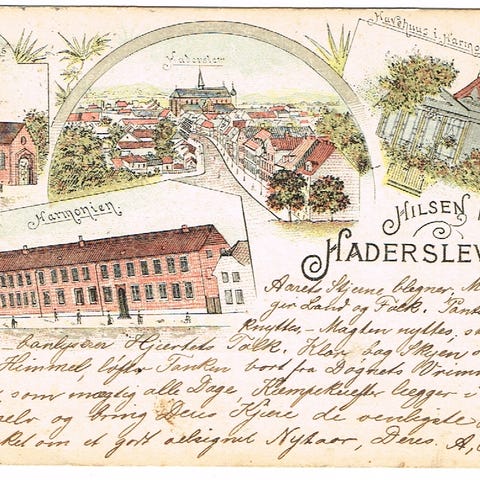 Haderslev
Havehuus i Harmo
Harmonien
HILSEN
HADERSLEV
Aarets Stjerne blegner, M
ger Land og Folk. Tank
knyttes, - Magten nyttes, s
banlyser Hjertets Tolk. Klar bag Skyen s
Himmel, løfter Tanken bort fra Døgnets Vrim
som mægtig alle Dage, Kæmpekræfter lægger i
og bring Deres Kjære de venligste
ket om et godt velsignet Nytaar, Deres. A,